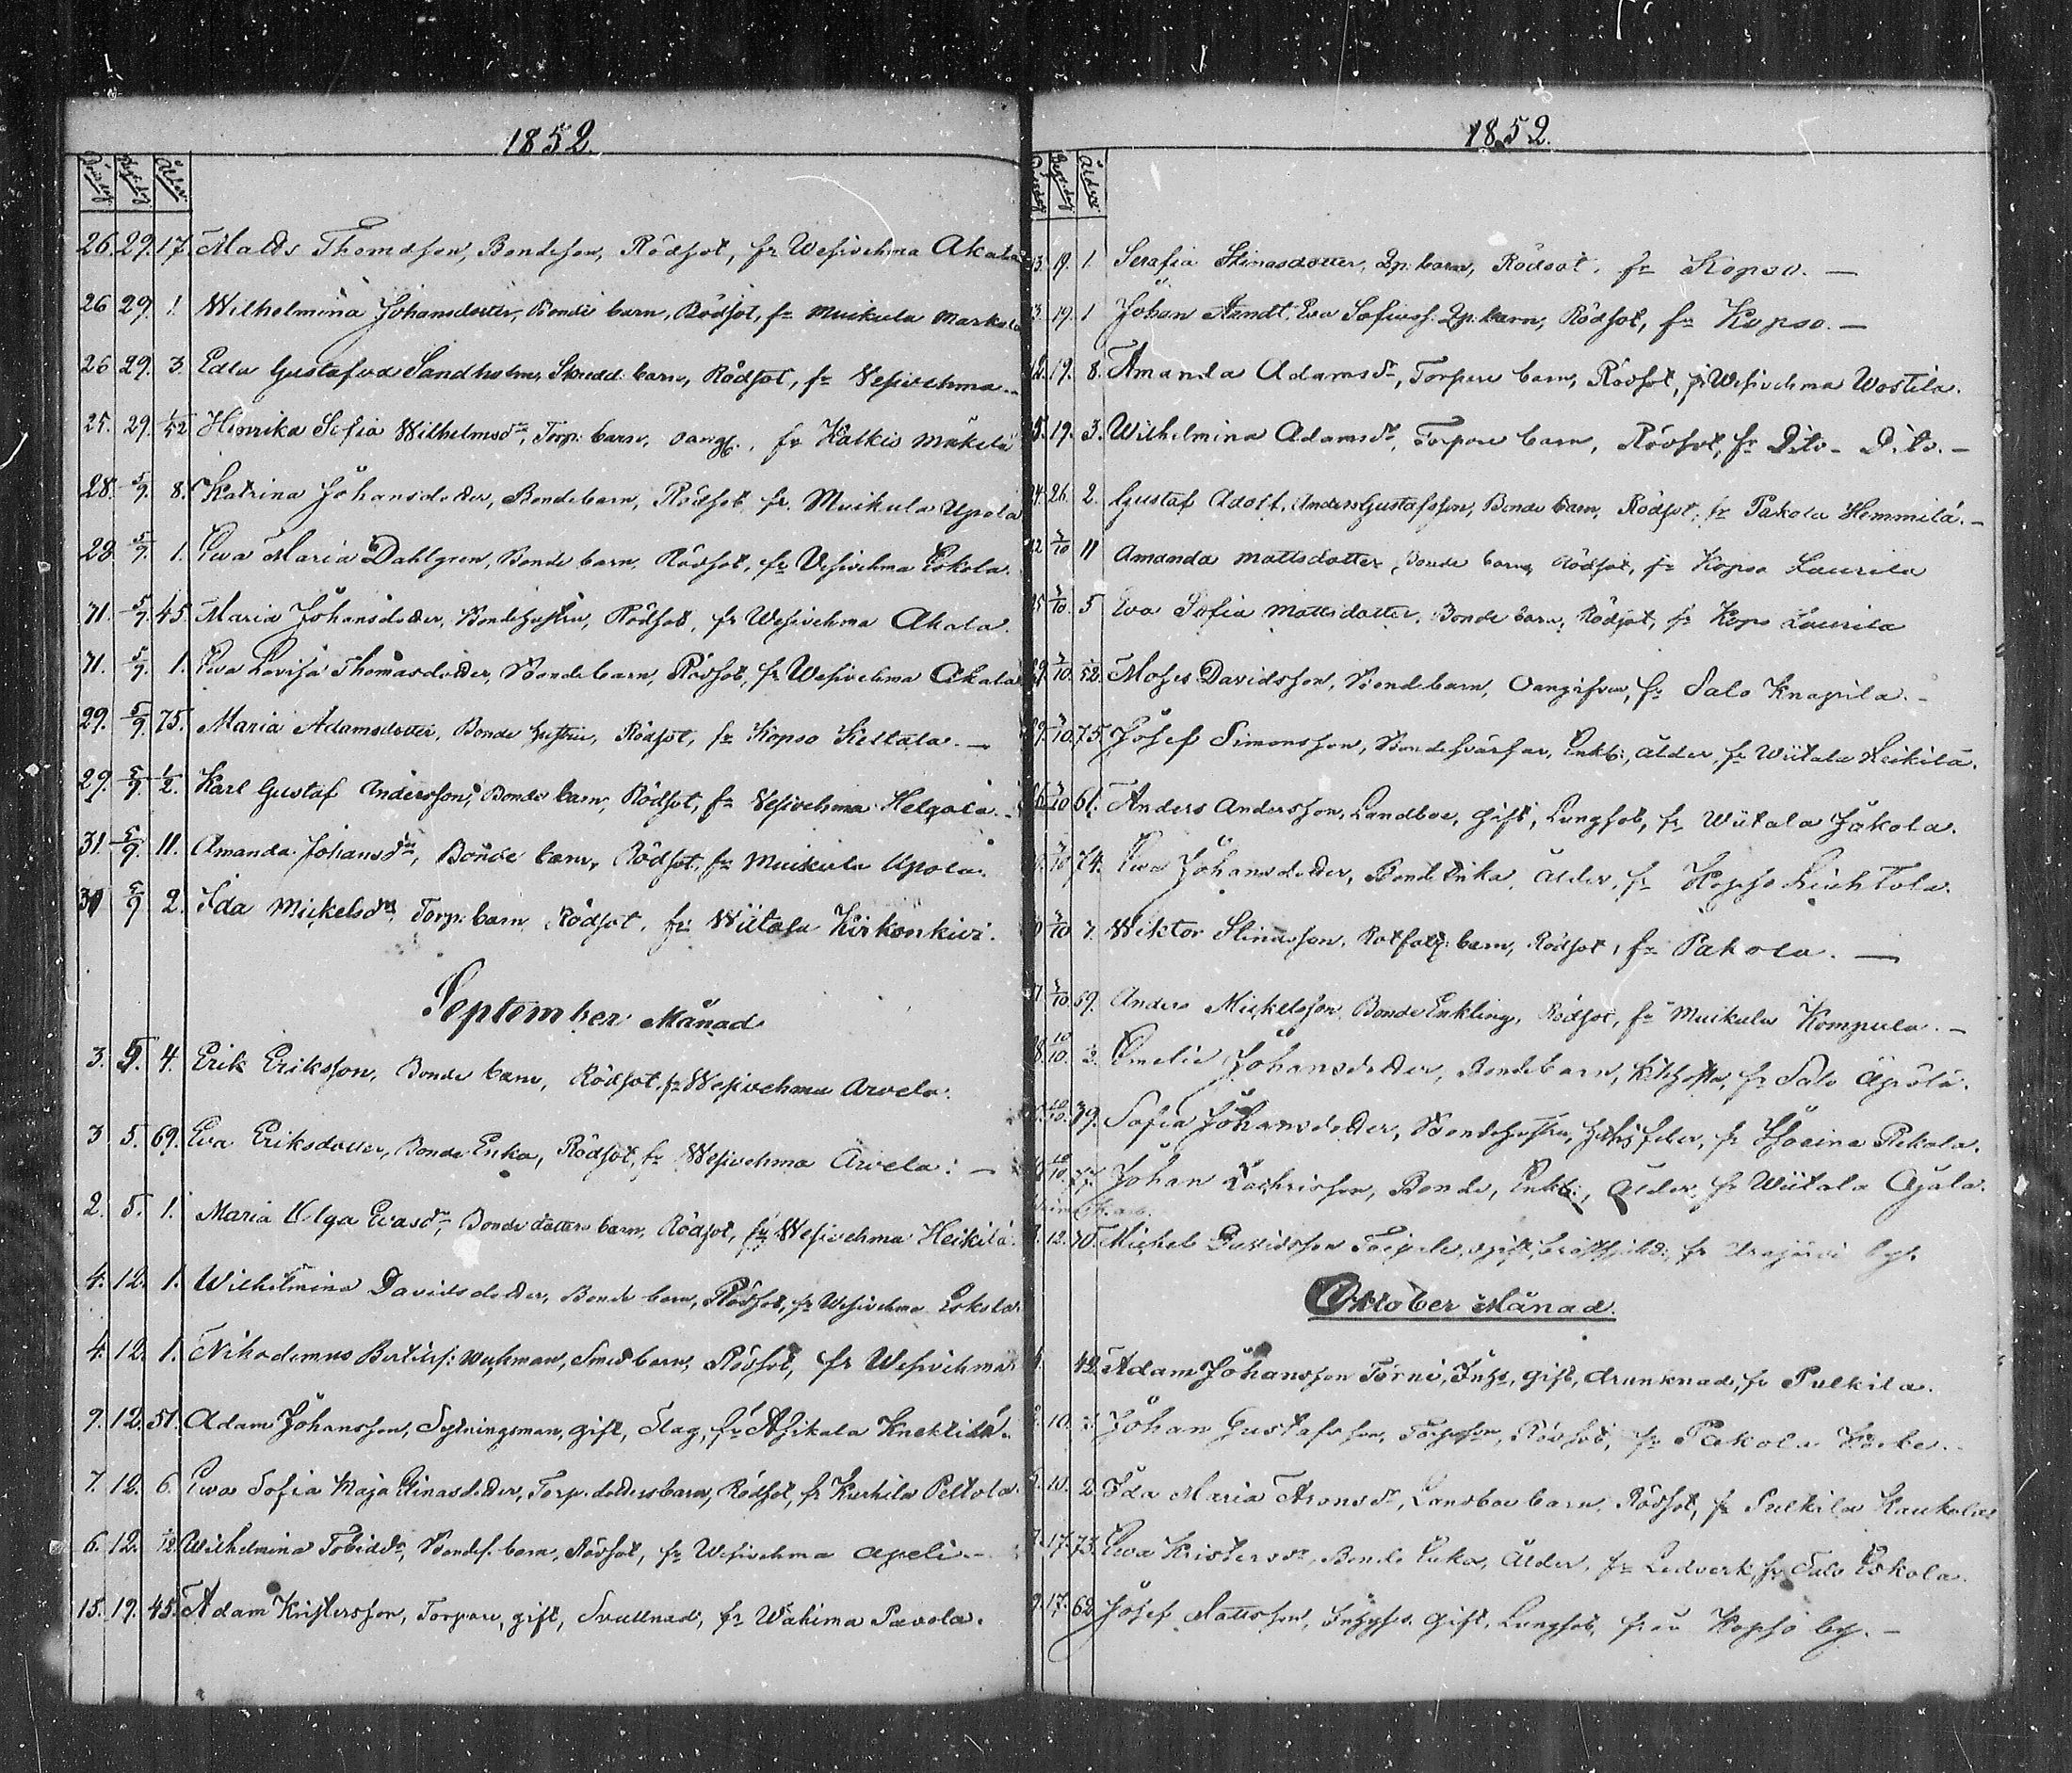 1852.
26. 29. 17. Matts Thomasson, Bondeson, Rödsot, fr Wesivehma Akala
26 29. 1. Wilhelmina Johansdotter, Bonde barn, Rödsot, fr Muikula Markola
26 29. 3. Edla Gustafva Sandholm, Skredd. barn, Rödsot, fr Vesivehma
25. 29. 1/52 Henrika Sofia Wilhelmsdr, Torp. barn, oang., fr Kalkis Mäkelä
28. 5/9. 8. Katrina Johansdotter, Bondebarn, Rödsot, fr. Muikula Upola
28. 5/9. 1. Ewa Maria Dahlgren, Bonde barn, Rödsot, fr Vesivehma Eskola.
31. 5/9. 45. Maria Johansdotter, Bondehustru, Rödsot, fr Wesivehma Akala.
31. 5/9. 1. Ewa Lovisa Thomasdotter, Bondebarn, Rödsot, fr Wesivehma Akala
29. 5/9. 75. Maria Adamsdotter, Bonde hustru, Rödsot, fr Kopso Keltala. —
29. 5/9. 1/2. Karl Gustaf Andersson, Bonde barn, Rödsot, fr Vesivehma Helgola.
31. 5/9. 11. Amanda Johansdr, Bonde barn, Rödsot, fr Muikula Upola.
30 5/9 2. Ida Mickelsdr, Torp. barn, Rödsot, fr Wiitala Kirkonkivi.
September Månad
3. 5. 4. Erik Eriksson, Bonde barn, Rödsot, fr Wesivehma Arvela.
3 5. 69. Eva Eriksdotter, Bonde Enka, Rödsot, fr Wesivehma Arvela. —
2. 5. 1. Maria Olga Evasdr, Bonde dotters barn, Rödsot, fr Wesivehma Heikilä.
4. 12. 1. Wilhelmina Davidsdotter, Bonde barn, Rödsot, fr Wesivehma Eskola.
4. 12. 1. Nikodemus Bertilsf. Wukman, Smed barn, Rödsot, fr Wesivehma
9. 12. 51. Adam Johansson, Sytningsman, gift, Slag, fr Asikala Knektilä.
7. 12. 6. Ewa Sofia Maja Stinasdotter, Torp. dottersbarn, Rödsot, fr Kurhila Peltola.
6. 12. 1/12 Wilhelmina Tobiasdr, Bondes. barn, Rödsot, fr Wesivehma Apeli. —
15. 19. 45. Adam Kristersson, Torpare, gift, Svullnad, fr Wähimä Pavola.
1852.
19. 1 Serafia Stinasdotter, Qp. barn, Rödsot, fr Kopso. —
19. 1 Johan Eva Sofias s. Qp. barn, Rödsot, fr Kopso. —
19. 8. Amanda Adamsdr, Torpare barn, Rödsot, fr Wesivehma Wostila.
19. 3. Wilhelmina Adamsdr, Torpare barn, Rödsot, fr Dito - Dito. —
26. 2. Gustaf Adolf, Anders Gustafsson, Bonde barn, Rödsot, fr Pakola Hemmilä. —
3/10 11 Amanda Mattsdotter, Bonde barn, Rödsot, fr Kopso Laurila
3/10. 5 Eva Sofia Mattsdotter, Bonde barn, Rödsot, fr Kopso Laurila
3/10 1/52. Moses Davidsson, Bondebarn, Oangifven, fr Salo Knapila. —
3/10. 75. Josef Simonsson, Bondesvärfar, Enkl., ålder, fr Wiitala Heikilä.
3/10 61. Anders Andersson, Landboe, gift, Lungsot, fr Wiitala Jakola.
3/10 74. Ewa Johansdotter, Bonde Enka, ålder, fr Kopso Leihtola.
3/10 7. Wiktor Stinasson, barn, Rödsot, fr Pakola. —
3/10. 59. Anders Mickelsson, Bonde Enkling, Rödsot, fr Muikula Kompula. —
10/10. Emelie Johansdotter, Bondebarn, Kikhosta, fr Salo Äpölä.
10/10. 39. Sofia Johansdotter, Bondehustru, feber, fr Hoeina Pekola.
10/10 77. Johan Zachrisson, Bonde, Enkl., ålder, fr Wiitala Ajala.
12. 70. Michel Davidsson gift, fr Urajärvi by.
Oktober Månad.
42. Adam Johansson Törni, Inhs, gift, drunknad, fr Pulkila.
10. Johan Gustafsson, Rödsot, fr Pakola
10. 2. Ida Maria Aronsdr, Landboe barn, Rödsot, fr Pulkila Kaukola
17. 73. Ewa Kristersdr, Bonde Enka, ålder, fr Ledverk, fr Salo Eskola.
17. 62. Josef Mattsson, Inhyses, Gift, Lungsot, från Kopso by. —